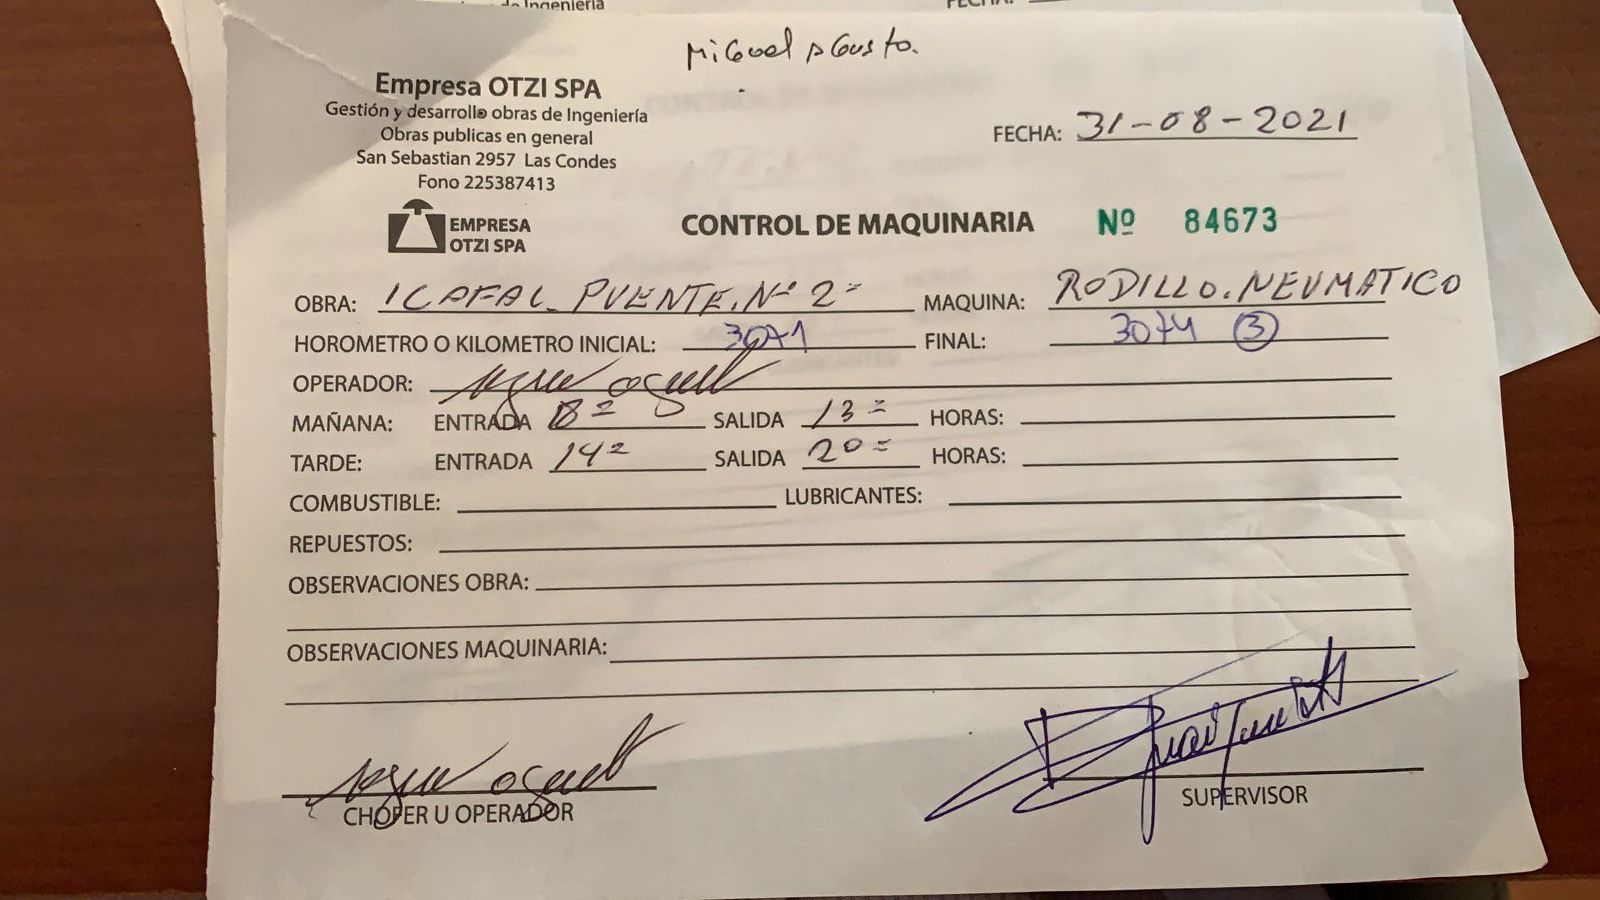 de Ingeniería
FECHA:
Miguel Agusto.
Empresa OTZI SPA
Gestión y desarrollo obras de Ingeniería
Obras publicas en general
San Sebastian 2957 Las Condes
Fono 225387413
FECHA: 31-08-2021
EMPRESA
OTZI SPA
CONTROL DE MAQUINARIA Nº 84673
OBRA: ICAFAL. PUENTE. Nº 2= MAQUINA: RODILLO. NEUMATICO
HOROMETRO O KILOMETRO INICIAL: 3071 FINAL: 3074 3
OPERADOR:
MAÑANA: ENTRADA 8= SALIDA 13= HORAS:
TARDE: ENTRADA 14= SALIDA 20= HORAS:
COMBUSTIBLE: LUBRICANTES:
REPUESTOS:
OBSERVACIONES OBRA:
OBSERVACIONES MAQUINARIA:
CHOFER U OPERADOR
SUPERVISOR